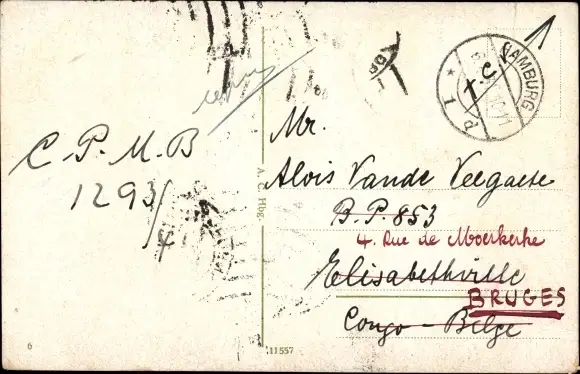 C. P. M. B
1293/4
A. C. Hbg.
6
11557
HAMBURG
1
T.C.
Mr.
Alois Vande Veegaete
B. P. 853
4. Rue de Moerkerke
Elisabethville
BRUGES
Congo - Belge